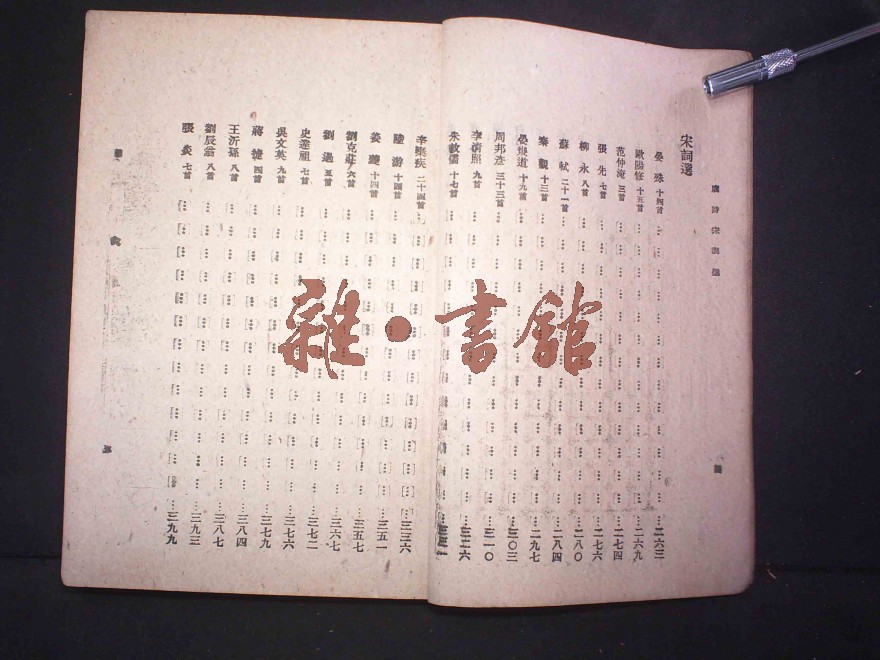 唐詩宋詞選
宋詞選
晏殊 十四首……二六三
歐陽修 十五首……二六九
范仲淹 三首……二七四
張先 七首……二七六
柳永 八首……二八〇
蘇軾 二十一首……二八四
秦觀 十三首……二九七
晏幾道 十九首……三〇三
周邦彥 三十三首……三一〇
李清照 九首……三二六
朱敦儒 十七首……
辛棄疾 二十四首……三三六
陸游 十四首……三五一
姜夔 十四首……三五七
劉克莊 六首……三六七
劉過 五首……三七二
史達祖 七首……三七六
吳文英 九首……三七九
蔣捷 四首……三八四
王沂孫 八首……三八七
劉辰翁 八首……三九三
張炎 七首……三九九
雜·書館